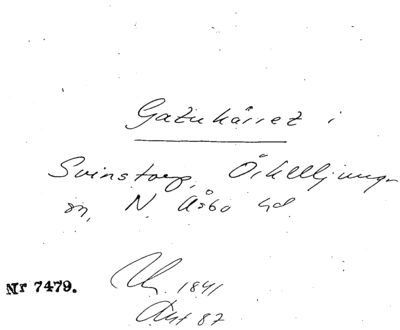 Gatukärret i
Svinstorp, Örkelljunga
sn, N. Åsbo hd.
Nr 7479.
1841
Akt 87